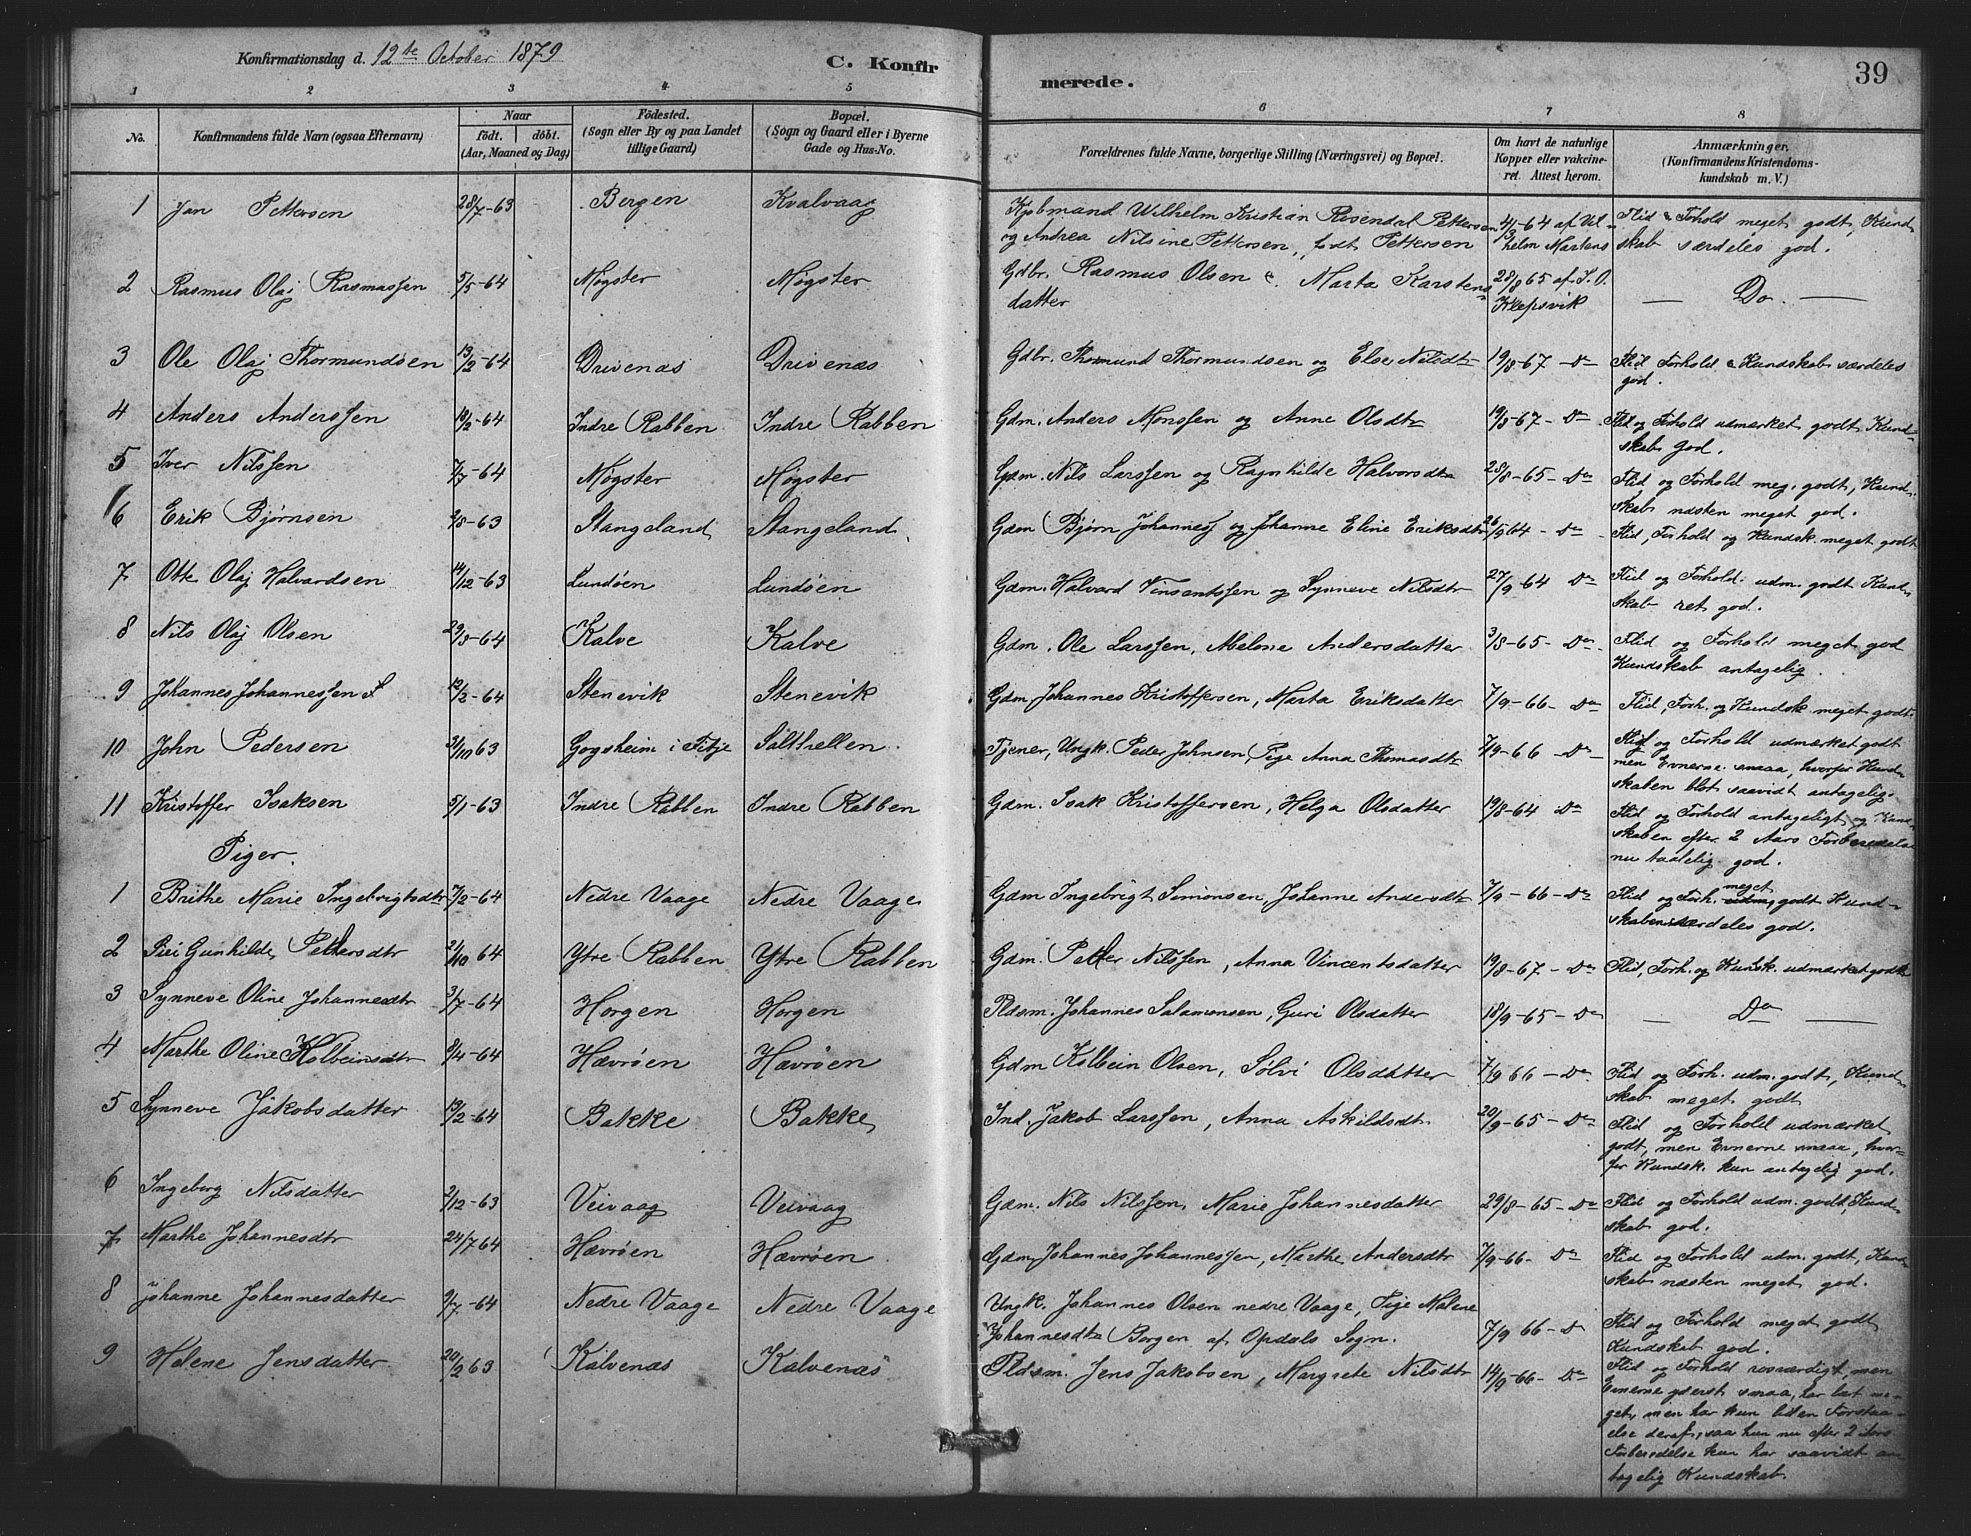 Konfirmationsdag d. 12te October 1879
C. Konfirmerede.
39
1 2 3 4 5 6 7 8
No.
Konfirmandens fulde Navn (ogsaa Efternavn)
Naar
födt. döbt.
(Aar, Maaned og Dag)
Födested.
(Sogn eller By og paa Landet
tillige Gaard)
Bopæl.
(Sogn og Gaard eller i Byerne
Gade og Hus-No.
Forældrenes fulde Navne, borgerlige Stilling (Næringsvei) og Bopæl.
Om havt de naturlige
Kopper eller vakcine-
ret. Attest herom.
Anmærkninger.
(Konfirmandens Kristendoms-
kundskab m. V.)
1 Jan Pettersen 28/7-63 Bergen Kvalvaag Kjøbmand Wilhelm Kristian Rosendal Pettersen 4/9-64 af Vil- Flid & Forhold meget godt, Kund
og Andrea Nilsine Pettersen, født Pettersen helm Martens skab særdeles god.
2 Rasmus Olaj Rasmussen 5/5-64 Møgster Møgster Gdbr. Rasmus Olsen & Marta Karstens 28/8 65 af J. O. — Do. —
datter Klepsvik
3 Ole Olaj Thormundsen 13/2-64 Drivenæs Drivenæs Gdbr. Thormund Thormundsen og Else Nilsdtr 19/8-67 - Do Flid Forhold & Kundskab særdeles
god.
4 Anders Anderssen 18/2-64 Indre Rabben Indre Rabben Gdm. Anders Monssen og Anne Olsdtr 19/8-67 - Do Flid og Forhold udmærket godt Kund-
skab god.
5 Iver Nilssen 7/7-64 Møgster Møgster Gdm. Nils Larssen og Ragnhilde Halvorsdtr 28/8-65 - Do Flid og Forhold meg. godt, Kund-
skab næsten meget god.
6 Erik Bjørnsen 2/8-63 Stangeland Stangeland Gdm Bjørn Johanness og Johanne Eline Eriksdtr 26/9 64 - Do - Flid, Forhold og Kundsk. meget godt
7 Otte Olaj Halvardsen 14/12-63 Lundøen Lundøen Gdm. Halvard Vinsentssen og Synneve Nilsdtr 27/9-64 Do Flid og Forhold. udm. godt Kund-
skab ret god.
8 Nils Olaj Olsen 29/3-64 Kalve Kalve Gdm. Ole Larssen, Malene Andersdatter 3/8-65 - Do Flid og Forhold meget god
Kundskab antagelig.
9 Johannes Johannessen 12/2-64 Stenevik Stenevik Gdm. Johannes Kristoffersen, Marta Eriksdatter 7/9-66 - Do Flid, Forh. og Kundsk meget godt.
10 John Pedersen 3/10 63 Gogsheim i Fitje Salthellen Tjener, Ungk. Peder Johnsen, Pige Anna Thomasdtr 7/9-66 - Do - Flid og Forhold udmærket godt
men Evnerne smaa, hvorfor Kund-
skaben blot saavidt antagelig.
11 Kristoffer Isaksen 5/1-63 Indre Rabben Indre Rabben Gdm. Isak Kristoffersen, Helga Olsdatter 19/8-64 Do Flid og Forhold antageligt og Kund-
skaben efter 2 Aars Forberedelse
nu taalelig god.
Piger.
1 Brithe Marie Ingebrigtsdtr 7/2-64 Nedre Vaage Nedre Vaage Gdm Ingebrigt Simonsen, Johanne Andersdtr 7/9-66 - Do Flid og Forh. meget godt Kund-
skaben særdeles god.
2 Siri Gunhilde Pettersdtr 21/10 64 Ytre Rabben Ytre Rabben Gdm. Petter Nilssen, Anna Vincentsdatter 19/8-67 - Do Flid, Forh. og Kundsk. udmærket godt
3 Synneve Oline Johannesdtr 3/7-64 Horgen Horgen Pldsm. Johannes Salamonsen, Guri Olsdatter 18/9-65 - Do — Do —
4 Marthe Oline Kolbeinsdtr 8/4-64 Hævrøen Hævrøen Gdm Kolbein Olsen, Sølvi Olsdatter 7/9 66 - Do Flid og Forh. udm. godt, Kund-
skab meget godt
5 Synneve Jakobsdatter 19/2-64 Bakke Bakke Ind. Jakob Larssen, Anna Askildsdtr 20/9-65 - Do Flid og Forhold udmærket
godt, men Evnerne smaa, hvor-
for Kundsk. kun antagelig god.
6 Ingeborg Nilsdatter 2/12-63 Veivaag Veivaag Gdm. Nils Nilssen, Marie Johannesdatter 29/8-65 - Do Flid og Forhold udm. godt, Kund-
skab god.
7 Marthe Johannesdtr 24/7 64 Hævrøen Hævrøen Gdm. Johannes Johannessen, Marthe Andersdtr 7/9-66 - Do Flid og Forhold udm. godt, Kund
skab næsten meget god.
8 Johanne Johannesdatter 9/7-64 Nedre Vaage Nedre Vaage Ungk. Johannes Olsen nedre Vaage, Pige Malene
Johannesdtr Borgen af Opdals Sogn. 7/9 66 - Do Flid og Forhold meget godt
Kundskab god.
9 Helene Jensdatter 20/2 63 Kalvenæs Kalvenæs Pldsm. Jens Jakobsen, Margrete Nilsdtr 14/9-66 - Do Flid og Forhold rosværdigt, men
Evnerne yderst smaa, har lært me-
get, men har kun liden Forstaa-
else deraf, saa hun nu efter 2 Aars
Forberedelse kun har saavidt an-
tagelig Kundskab.